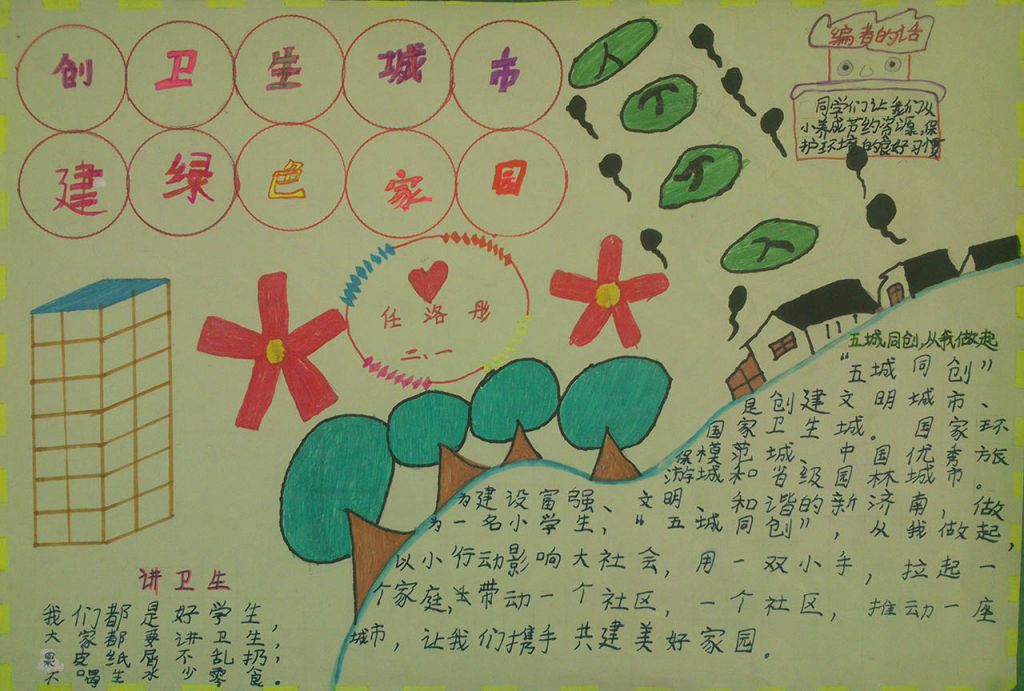 创卫生城市
建绿色家园
人
个
个
人
编者的话
同学们让我们从
小养成节约资源,保
护环境的良好习惯
任洛彤
二、一
五城同创,从我做起
“五城同创”
是创建文明城市、
国家卫生城。国家环
保模范城、中国优秀旅
游城和省级园林城市。
为建设富强、文明、和谐的新济南,做
为一名小学生,“五城同创”,从我做起,
以小行动影响大社会,用一双小手,拉起一
个家庭,去带动一个社区,一个社区,推动一座
城市,让我们携手共建美好家园。
讲卫生
我们都是好学生,
大家都要讲卫生,
果皮纸屑不乱扔;
不喝生水少零食。